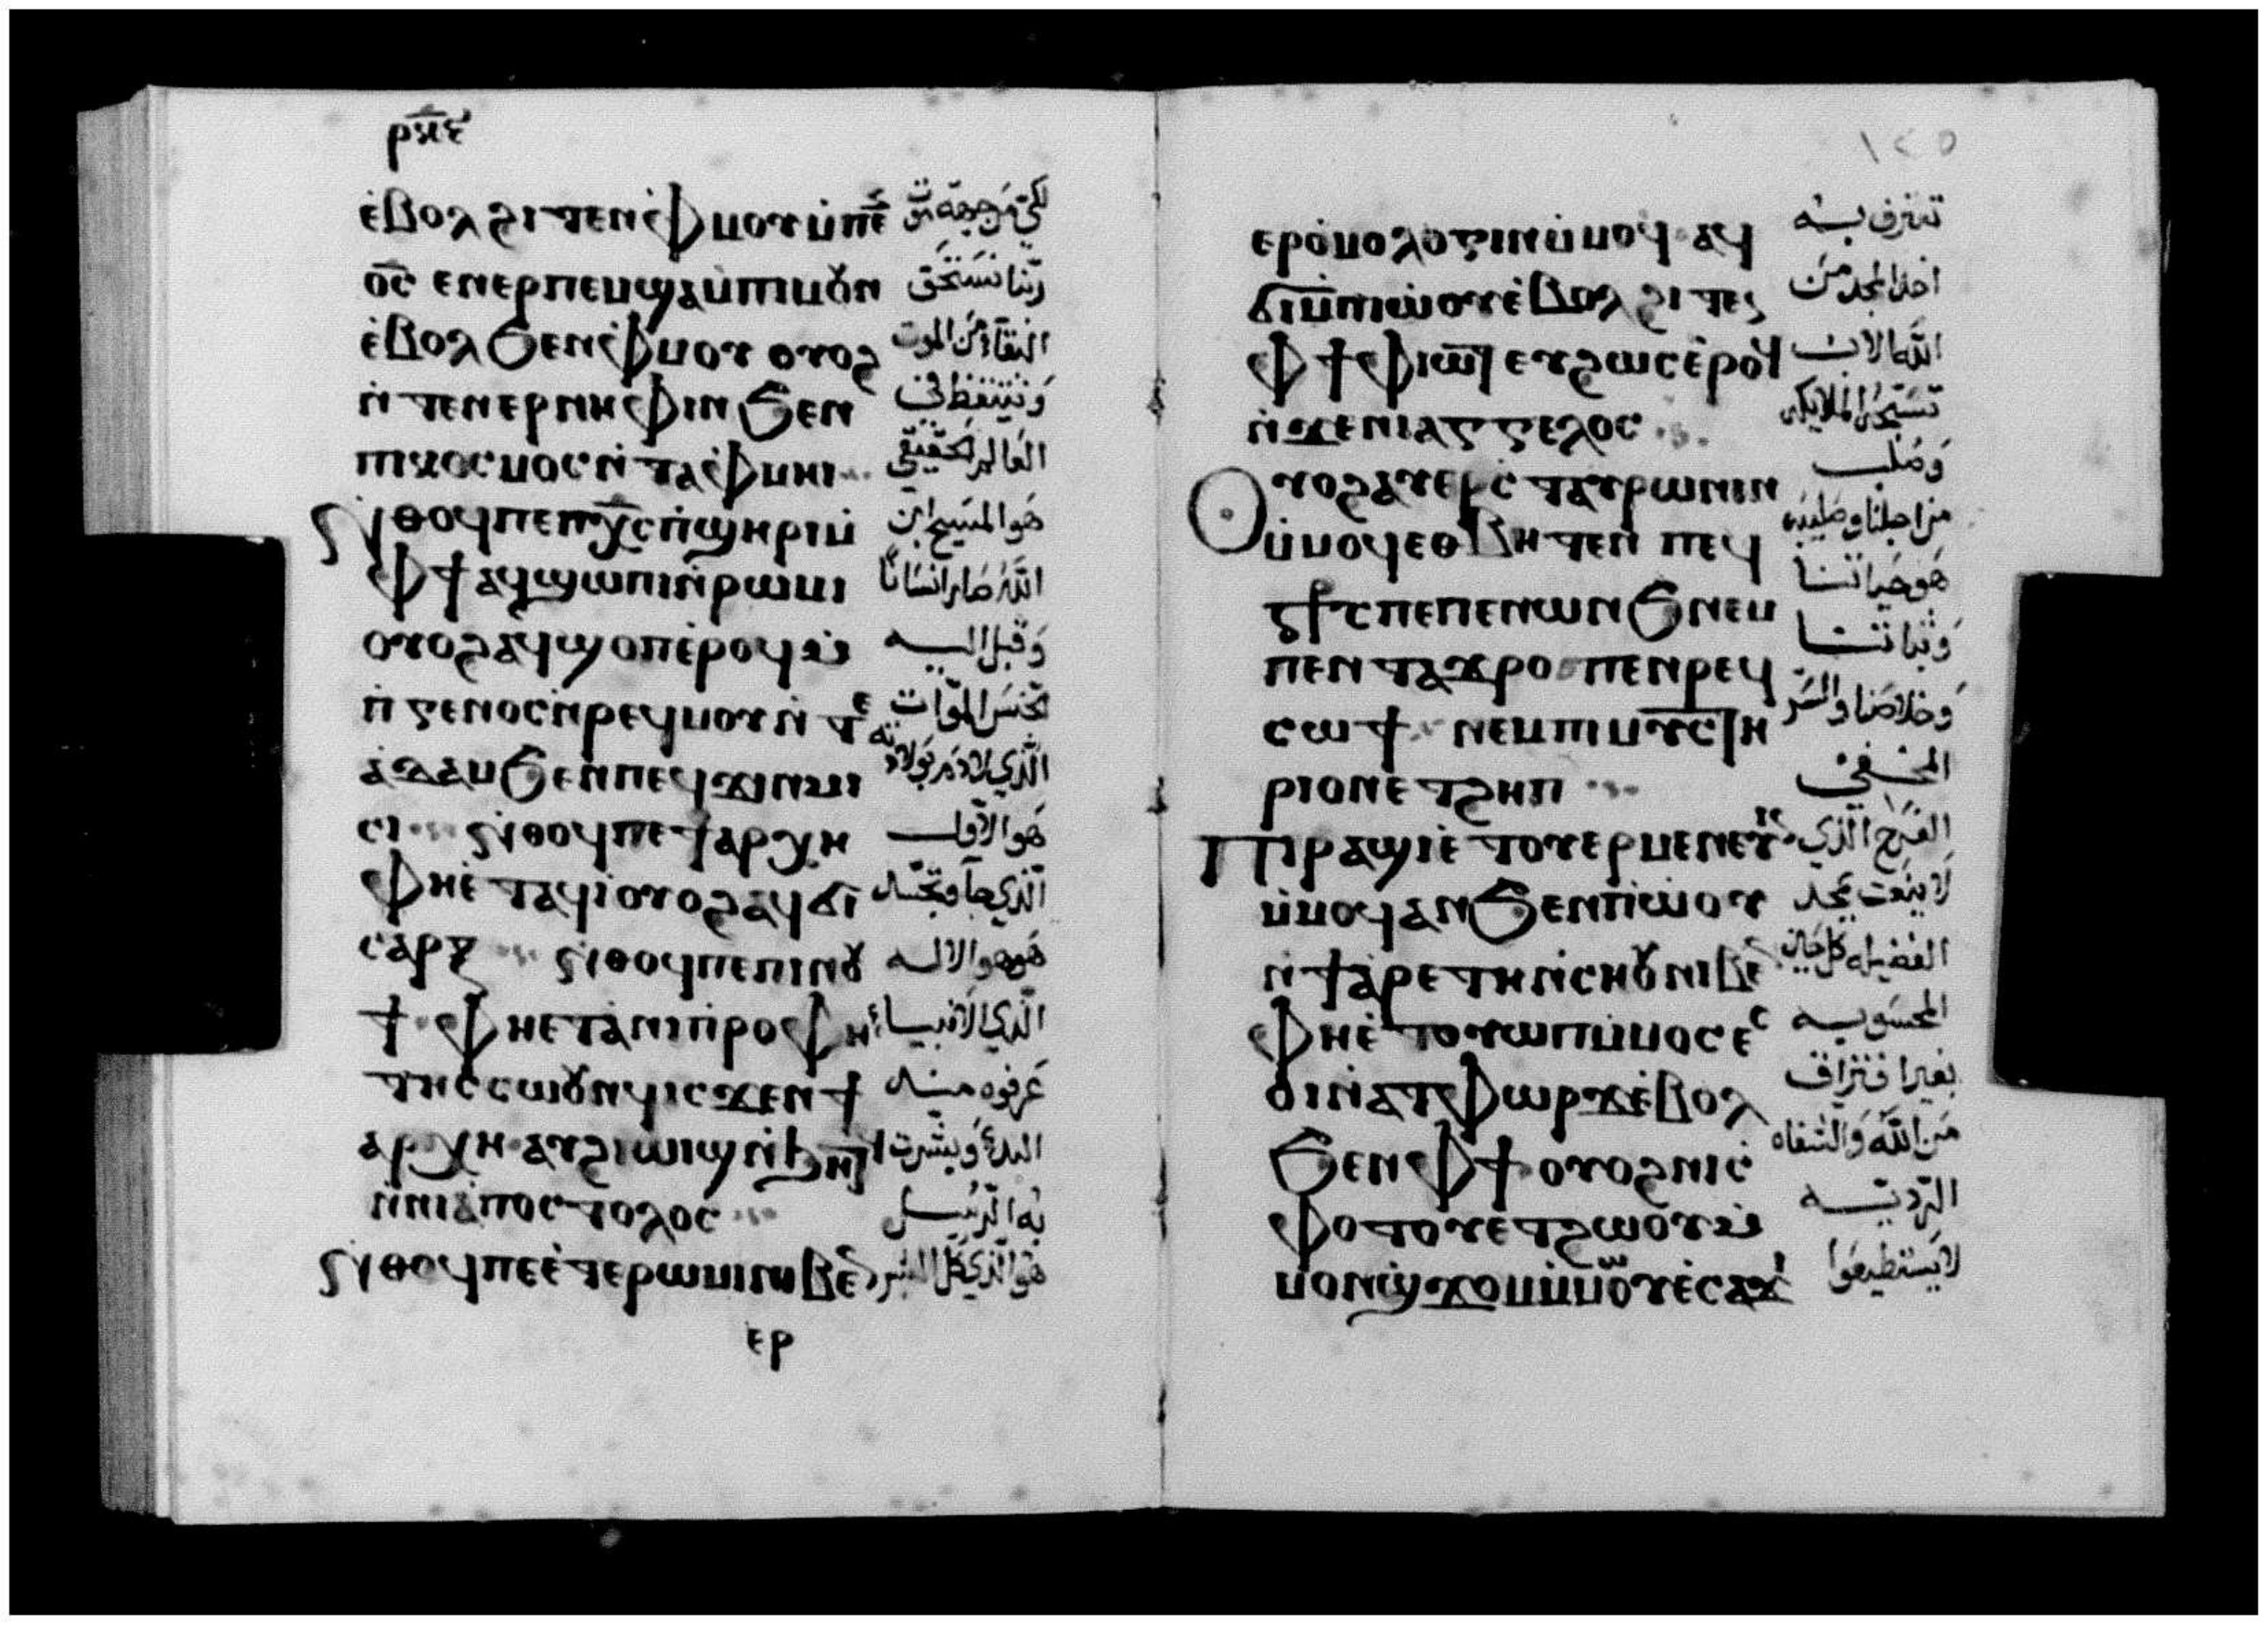 ⲉ̀ⲃⲟⲗ ϩⲓⲧⲉⲛ ⲫ̀ⲙⲟⲩ ⲙ̀ⲡⲉⲛ
لكي من جهة موت
ⲟ̅ⲥ̅ ⲉⲛⲉⲣⲡⲉⲙⲡϣⲁ ⲙ̀ⲡⲓⲙⲟⲩⲛ
ربنا نستحق
ⲉ̀ⲃⲟⲗ ϧⲉⲛ ⲫ̀ⲙⲟⲩ ⲟⲩⲟϩ
البقآء من الموت
ⲛ̀ⲧⲉⲛⲉⲣⲛⲏⲫⲓⲛ ϧⲉⲛ
وتتيقظ في
ⲡⲓⲕⲟⲥⲙⲟⲥ ⲛ̀ⲧⲁⲫ̀ⲙⲏⲓ
العالم الحقيقي
ϩⲓ ⲛⲑⲟϥ ⲡⲉ ⲡⲭ̅ⲥ̅ ⲡ̀ϣⲏⲣⲓ ⲙ̀
هو المسيح ابن
ⲫϯ ⲁϥϣⲱⲡⲓ ⲛ̀ⲣⲱⲙⲓ
الله صار انسانًا
ⲟⲩⲟϩ ⲁϥϣⲟⲡ ⲉ̀ⲣⲟϥ ⲙ̀
وقبل اليه
ⲡ̀ⲅⲉⲛⲟⲥ ⲛ̀ⲣⲉϥⲙⲟⲩ ⲛ̀ⲧⲉ
جنس الموات
ⲁ̀ⲇⲁⲙ ϧⲉⲛ ⲡⲉϥϫⲓⲛⲙⲓ
الذي لادم بولادته
ⲥⲓ ϩⲓ ⲛⲑⲟϥ ⲡⲉ ϯⲁⲣⲭⲏ
هو الاول
ⲫⲏⲉ̀ⲧⲁϥⲓ̀ ⲟⲩⲟϩ ⲁϥϭⲓ
الذي جآ وتجسد
ⲥⲁⲣⲝ ϩⲓ ⲛⲑⲟϥ ⲡⲉ ⲡⲓⲛⲟⲩ
هو هو الاله
ϯ ⲫⲏⲉⲧⲁ̀ⲛⲓⲡ̀ⲣⲟⲫⲏ
الذي الانبياء
ⲧⲏⲥ ⲥⲱⲟⲩⲛϥ ⲓⲥϫⲉⲛ ϯ
عرفوه منذ
ⲁⲣⲭⲏ ⲁⲩϩⲓⲱⲓϣ ⲙ̀ⲙⲟϥ
البدء وبشرت
ⲛ̀ϫⲉ ⲛⲓⲁ̀ⲡⲟⲥⲧⲟⲗⲟⲥ
به الرسل
ϩⲓ ⲛⲑⲟϥ ⲡⲉ ⲉ̀ⲧⲉ ⲣⲱⲙⲓ ⲛⲓⲃⲉⲛ
هو الذي كل البشر
ⲉⲣ
١٢٥
ⲉⲣⲟ̀ⲙⲟⲗⲟⲅⲓⲛ ⲙ̀ⲙⲟϥ ⲁϥ
تعترف به
ϭⲓ ⲙ̀ⲡⲓⲱ̀ⲟⲩ ⲉ̀ⲃⲟⲗ ϩⲓⲧⲉⲛ
اخذ المجد من
ⲫϯ ⲫⲓⲱⲧ ⲉⲩϩⲱⲥ ⲉ̀ⲣⲟϥ
الله الاب
ⲛ̀ϫⲉ ⲛⲓⲁⲅⲅⲉⲗⲟⲥ
تسبحه الملايكه
ⲟⲩⲟϩ ⲁⲩⲉⲣⲥ̀ⲧⲁⲩⲣⲱⲛⲓⲛ
وصلب
ⲙ̀ⲙⲟϥ ⲉⲑⲃⲏⲧⲉⲛ ⲡⲉϥ
من اجلنا وصليبه
ⲥⲧ̅ⲥ̅ ⲡⲉ ⲡⲉⲛⲱⲛϧ ⲛⲉⲙ
هو حياتنا
ⲡⲉⲛⲧⲁϫⲣⲟ ⲡⲉⲛⲣⲉϥ
وثباتنا
ⲥⲱϯ ⲛⲉⲙ ⲡⲓⲙⲩⲥⲧⲏ
وخلاصنا والسر
ⲣⲓⲟⲛ ⲉⲧϩⲏⲡ
المخفي
ⲡⲓⲣⲁϣⲓ ⲉ̀ⲧⲟⲩⲉⲣⲙⲉⲛⲉⲩⲓⲛ
الفرح الذي
ⲙ̀ⲙⲟϥ ⲁⲛ ϧⲉⲛ ⲡⲓⲱ̀ⲟⲩ
لا ينعت بمجد
ⲛ̀ϯⲁ̀ⲣⲉⲧⲏ ⲛ̀ⲥⲏⲟⲩ ⲛⲓⲃⲉⲛ
الفضيله كل حين
ⲫⲏⲉ̀ⲧⲟⲩⲱⲡ ⲙ̀ⲙⲟⲥ ⲉⲥ
المحسوبه
ⲟⲓ ⲛ̀ⲁⲧⲫⲱⲣϫ ⲉ̀ⲃⲟⲗ
بغير افتراق
ϧⲉⲛ ⲫϯ ⲟⲩⲟϩ ⲛⲓⲥ̀
من الله والشفاه
ⲫⲟⲧⲟⲩ ⲉⲧϩⲱⲟⲩ ⲙ̀
الرديه
ⲙⲟⲛϣϫⲟⲙ ⲙ̀ⲙⲱⲟⲩ ⲉ̀ⲥⲁϫⲓ
لا يستطيعوا